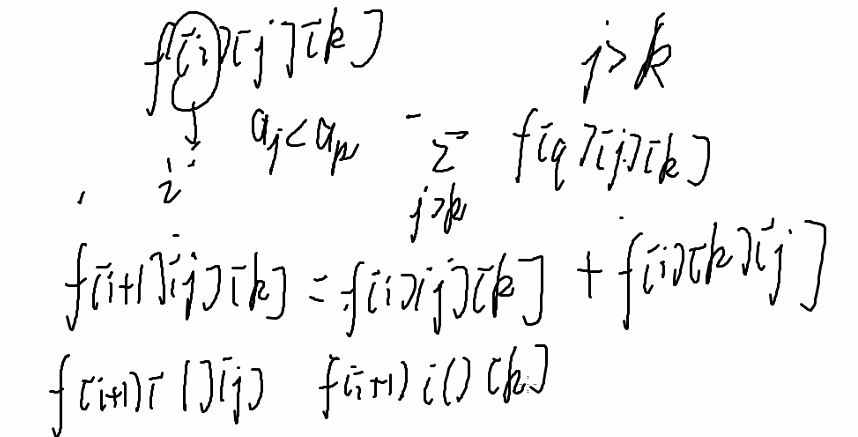 f[i][j][k] j>k
i
a_j<a_k Σ f[q][j][k]
j>k
f[i+1][j][k] = f[i][j][k] + f[i][k][j]
f[i+1]i[][j] f[i+1]i[][k]